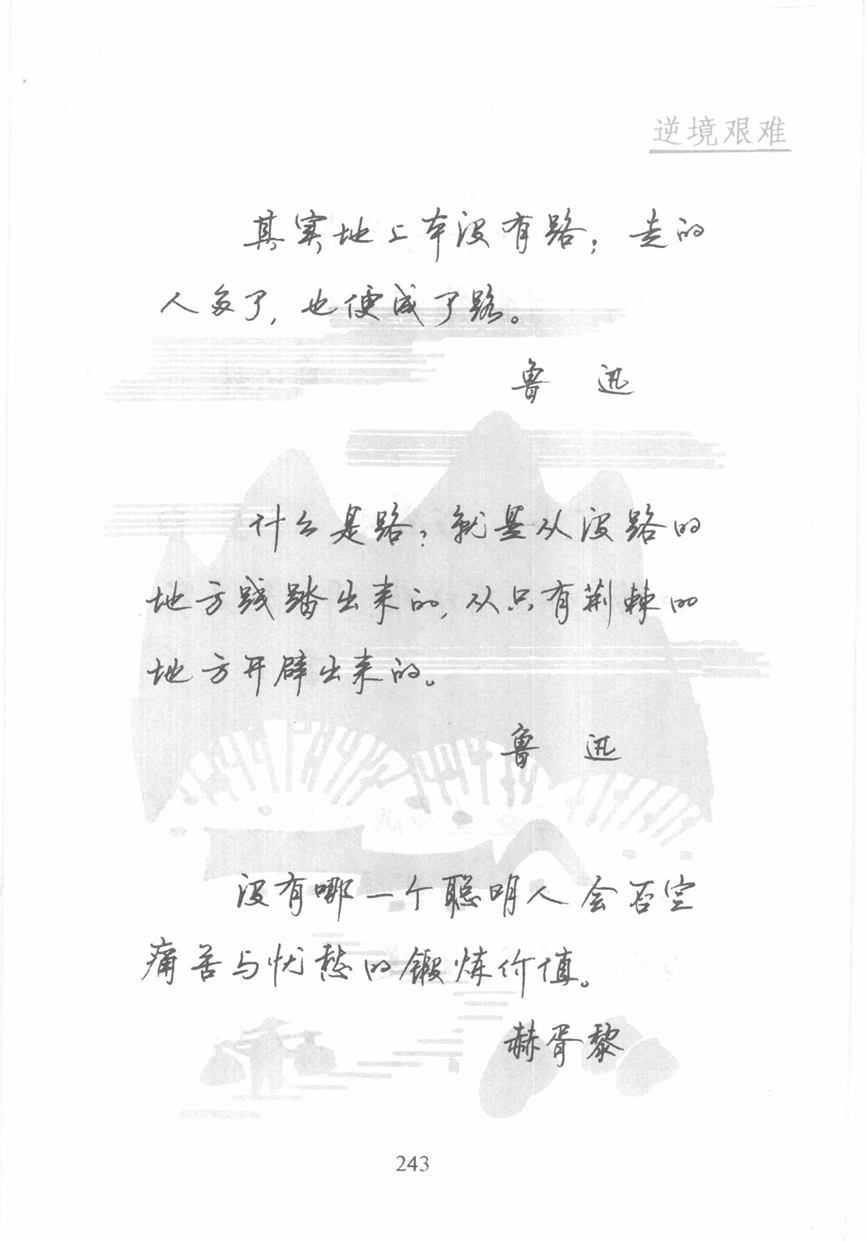 逆境艰难
其实地上本没有路，走的
人多了，也便成了路。
鲁 迅
什么是路？就是从没路的
地方践踏出来的，从只有荆棘的
地方开辟出来的。
鲁 迅
没有哪一个聪明人会否定
痛苦与忧愁的锻炼价值。
赫胥黎
243